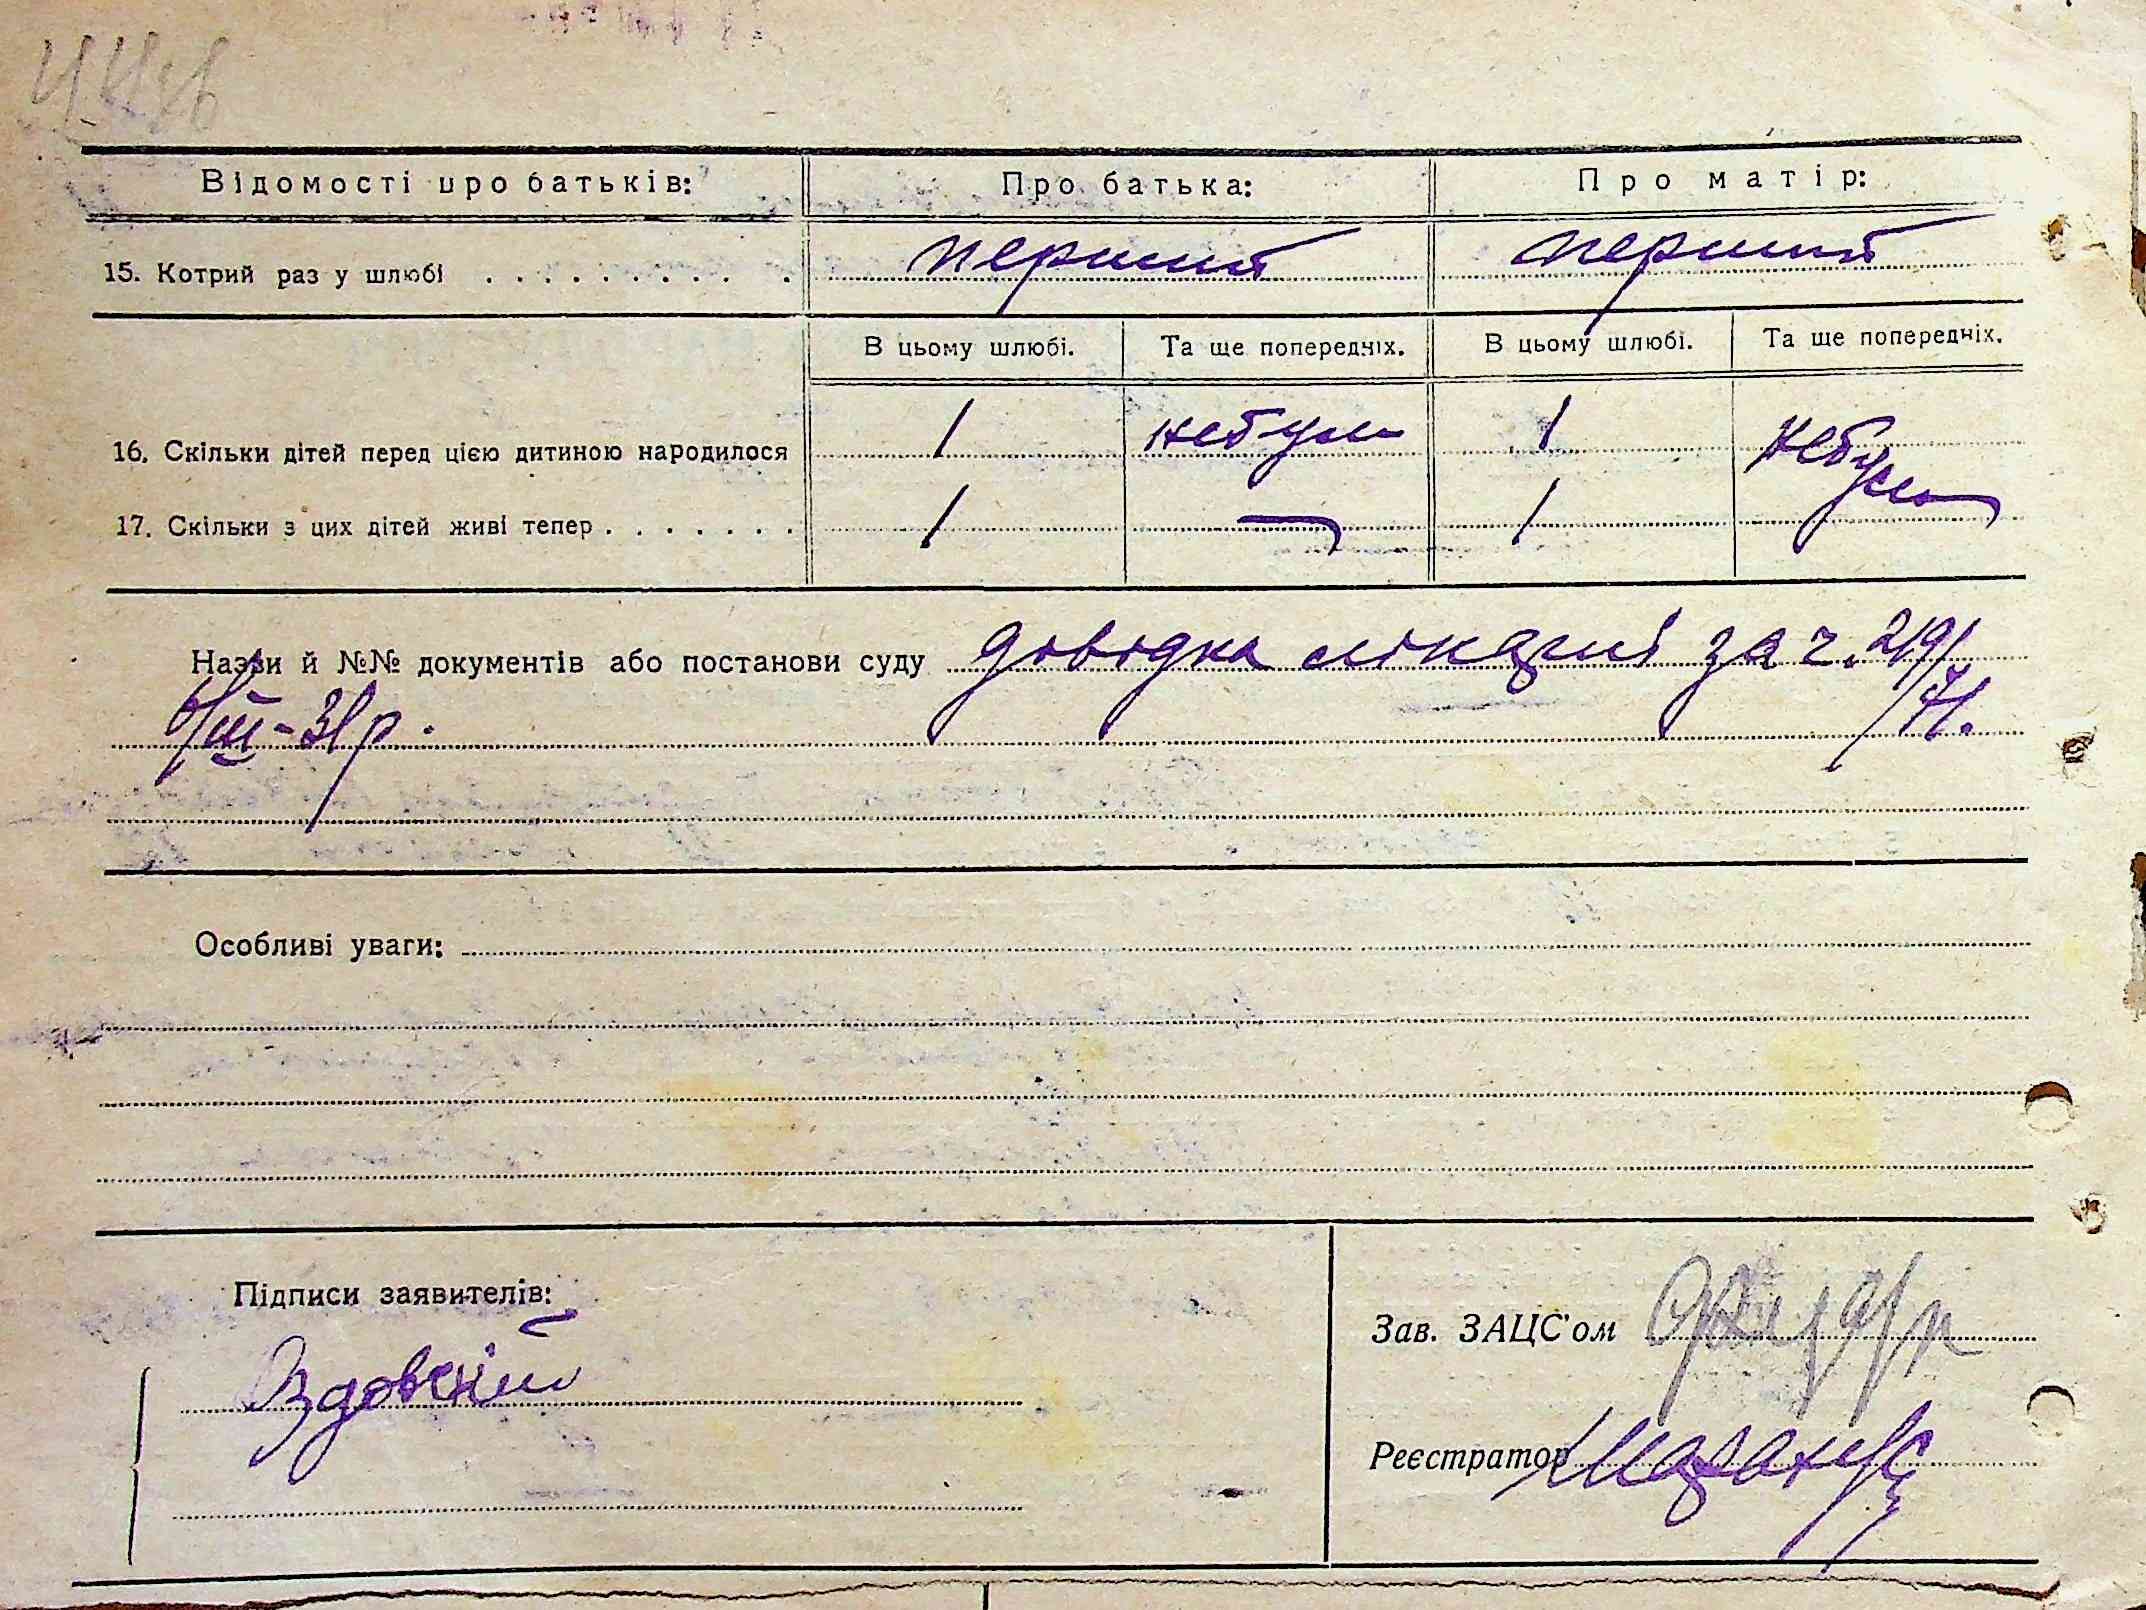 Відомості про батьків: Про батька: Про матір:
15. Котрий раз у шлюбі . . . . . . . . . . перший перший
В цьому шлюбі. Та ще попередніх. В цьому шлюбі. Та ще попередніх.
16. Скільки дітей перед цією дитиною народилося 1 небули 1 небули
17. Скільки з цих дітей живі тепер . . . . . . . 1 — 1
Назви й №№ документів або постанови суду довідка лікарні за ч. 219/
/71.
6/III-31 р.
Особливі уваги:
Підписи заявителів:
Зав. ЗАЦС'ом
Здовський
Реєстратор